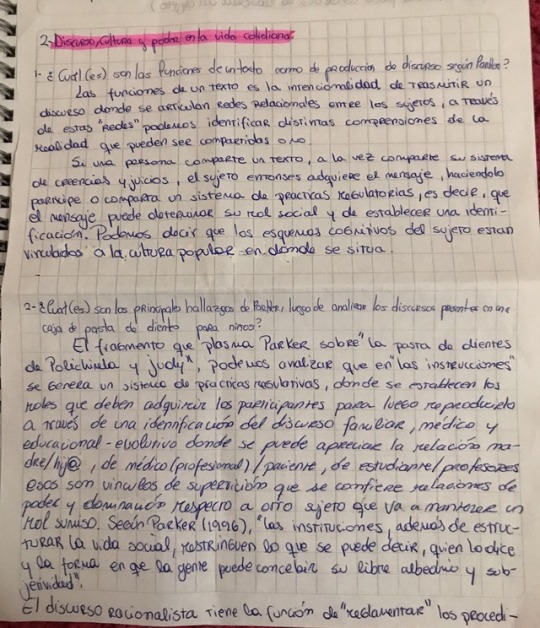 2- Discurso, Cultura y poder en la vida cotidiana.
1- ¿Cuál(es) son las funciones de un texto como de producción de discurso según Parker?
Las funciones de un texto es la intencionalidad de trasmitir un
discurso donde se articulan Redes Relacionales entre los sujetos, a través
de estas "Redes" podemos identificar distintas comprensiones de la
realidad que pueden ser compartidas o no.
Si una persona comparte un texto, a la vez comparte su sistema
de creencias y juicios, el sujeto entonses adquiere el mensaje, haciendolo
participe o comparta un sistema de practicas regulatorias, es decir, que
el mensaje puede determinar su rol social y de establecer una identi-
ficación. Podemos decir que los esquemas cognitivos del sujeto estan
vinculados a la cultura popular en donde se situa.
2- ¿Cuál(es) son los principales hallazgos de Parker, luego de analizar los discursos presentes en una
caja de pasta de diente para niños?
El fragmento que plasma Parker sobre "la pasta de dientes
de Polichinela y Judy", podemos analizar que en "las instrucciones"
se genera un sistema de practicas regulativas, donde se establecen los
roles que deben adquirir los participantes para luego reproducirlo
a través de una identificación del discurso familiar, médico y
educacional - evolutivo donde se puede apreciar la relación ma-
dre/hij@, de médico (profesional)/paciente, de estudiante/profesores
esos son vinculos de supervición que se confiere relaciones de
poder y dominación respecto a otro sujeto que va a mantener un
rol sumiso. Según Parker (1996), "las instituciones, además de estruc-
turar la vida social, restringuen lo que se puede decir, quien lo dice
y la forma en qe la gente puede concebir su libre albedrío y sub-
jetividad".
El discurso racionalista tiene la función de "reglamentar" los procedi-